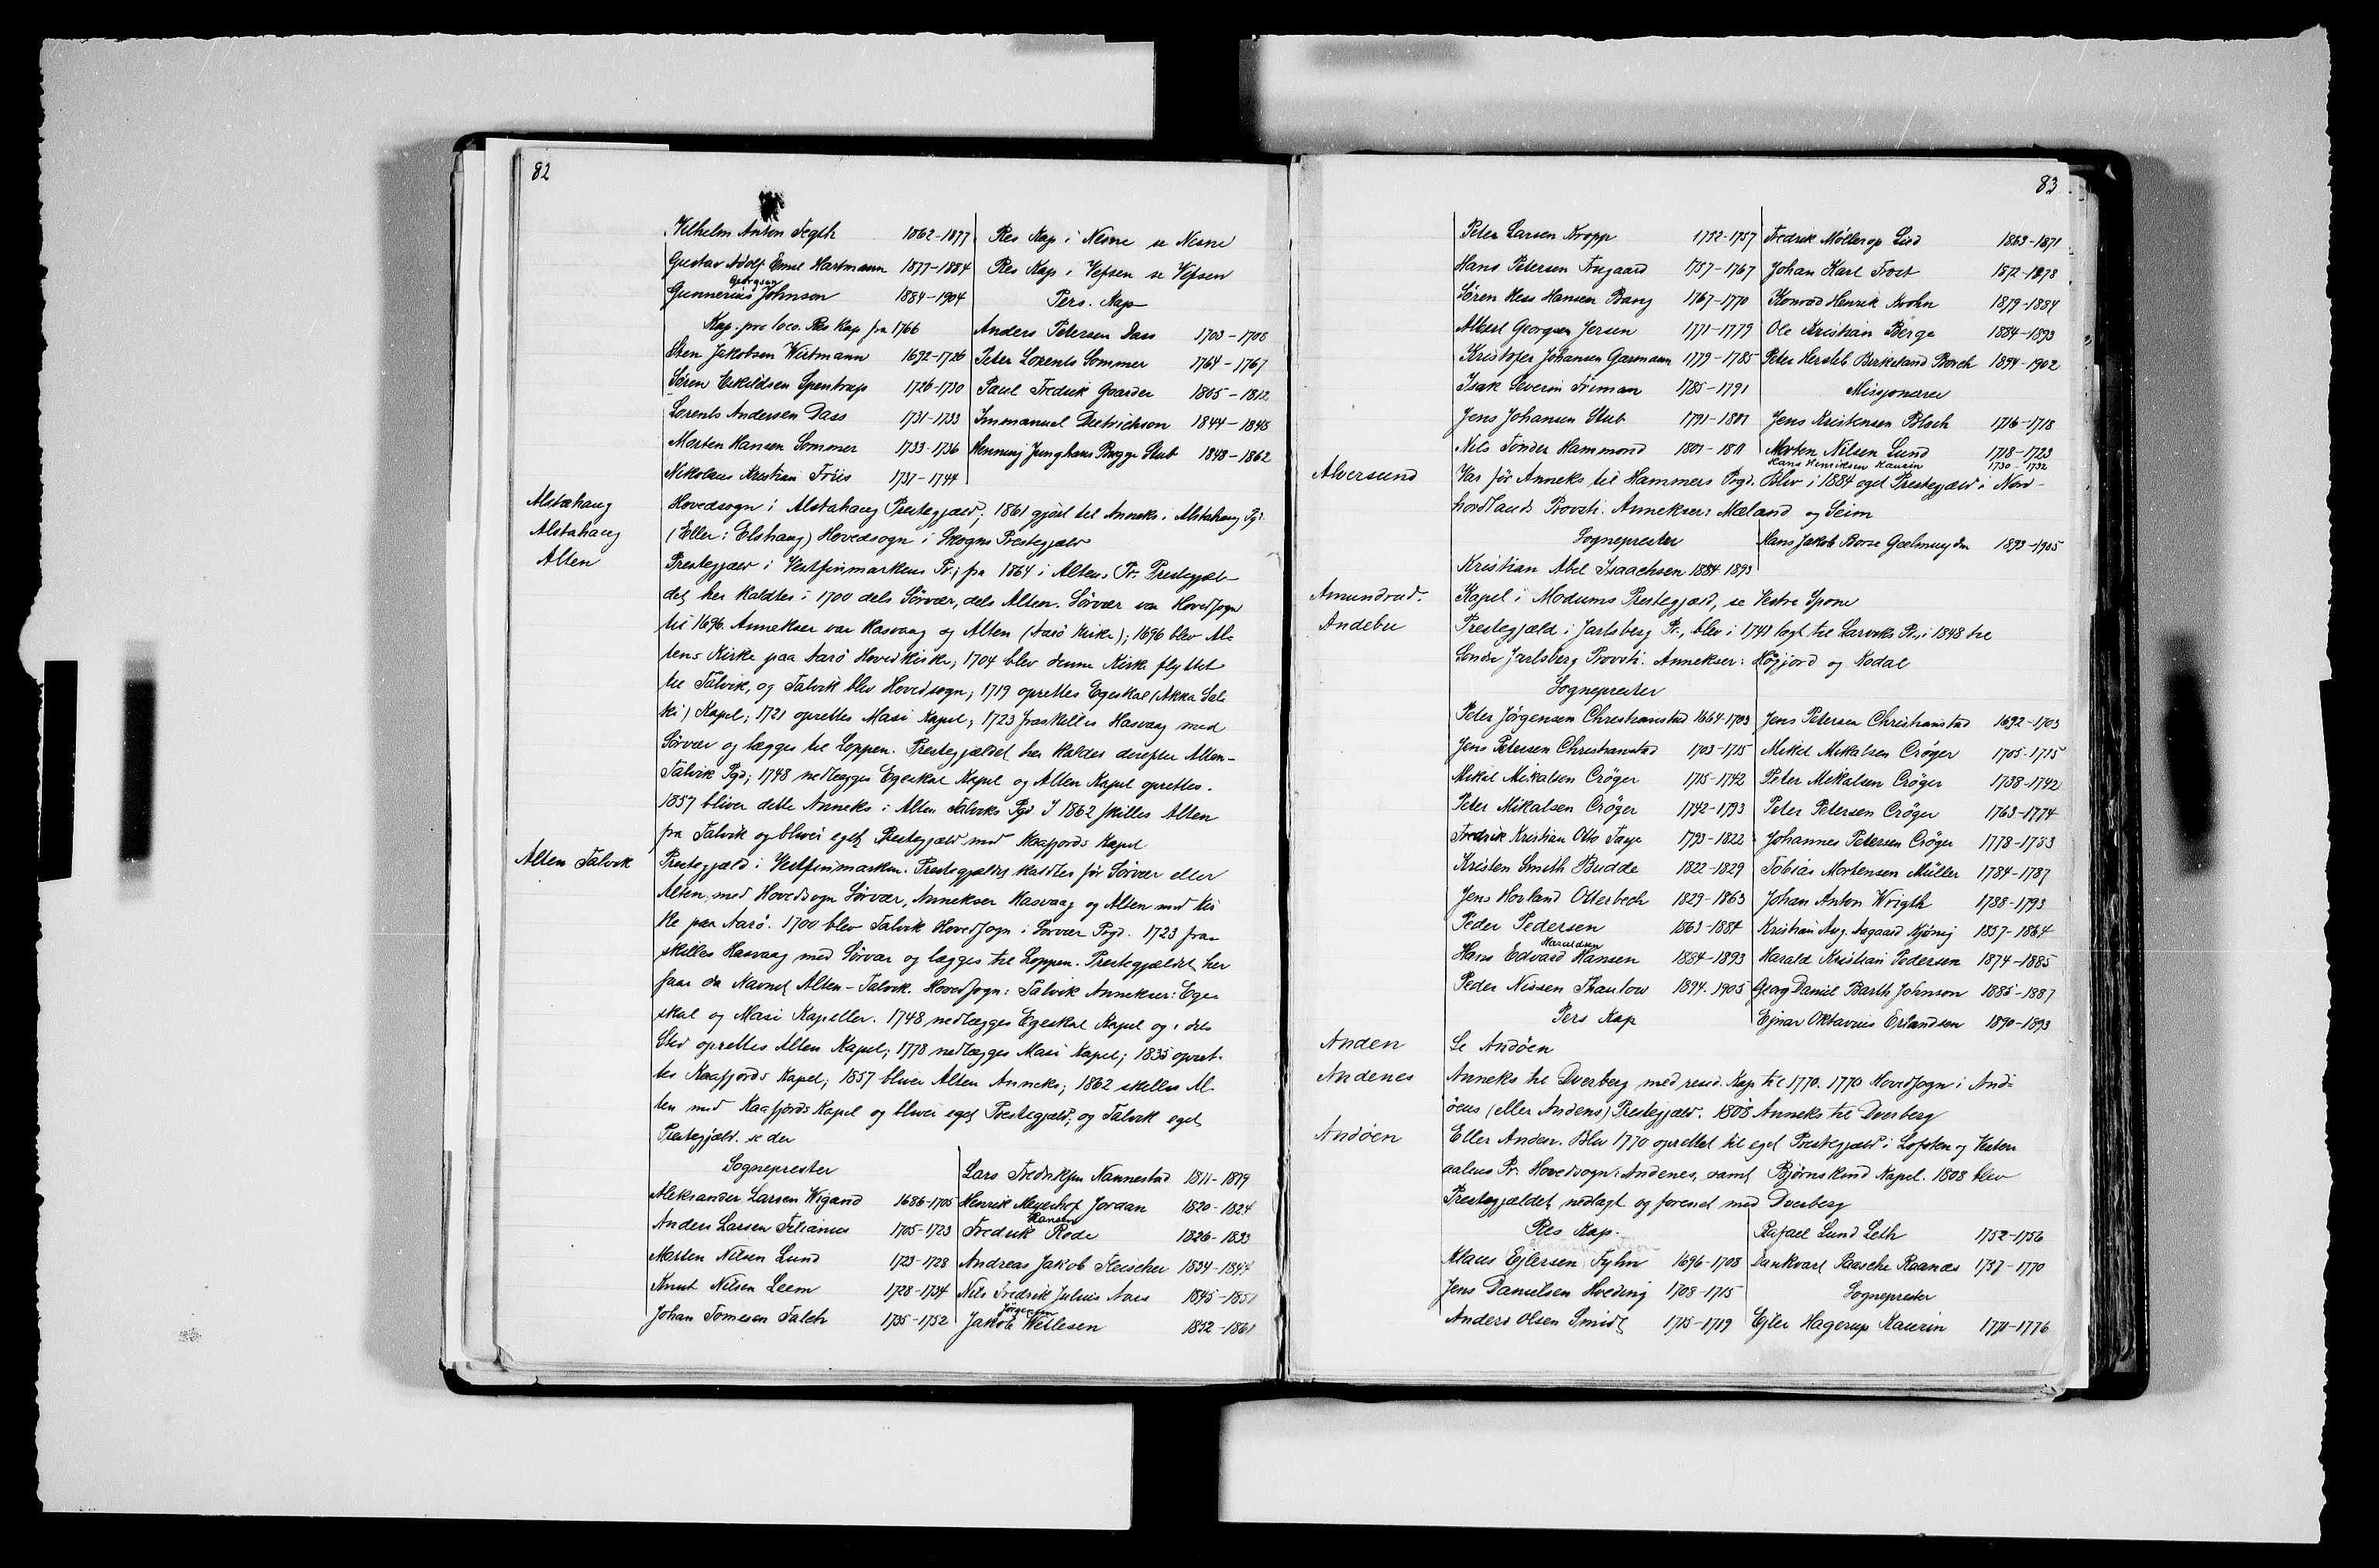 82
Vilhelm Anton Fegth 1862-1877
Gustav Adolf Emil Hartmann 1877-1884
Georgsen
Gunnerius Johnson 1884-1904
Kap. pro loco. Res Kap fra 1766
Sten Jakobsen Wirtmann 1692-1726
Søren Eskildsen Spentrup 1726-1730
Lorents Andersen Dass 1731-1733
Morten Hansen Sommer 1733-1736
Nikolaus Kristian Friis 1737-1744
Res Kap i Nesne se Nesne
Res Kap i Vefsen se Vefsen
Pers. Kap
Anders Petersen Dass 1703-1708
Peter Lorents Sommer 1764-1767
Paul Fredrik Gaarder 1805-1812
Immanuel Dietrichson 1844-1845
Henning Junghans Bugge Stub 1848-1862
Alstahaug Hovedsogn i Alstahaug Prestegjæld; 1861 gjort til Anneks i Alstahaug Pgd.
Alstahaug (Eller: Elshaug) Hovedsogn i Skogns Prestegjæld
Alten Prestegjæld i Vestfinmarkens Pr.; fra 1864 i Altens Pr. Prestegjæl-
det her kaldtes i 1700 dels Sörvær, dels Alten. Sörvær var Hovedsogn
til 1696. Annekser var Hasvaag og Alten (Aarö Kirke); 1696 blev Al-
tens Kirke paa Aarö Hovedkirke, 1704 blev denne Kirke flyttet
til Talvik, og Talvik blev Hovedsogn; 1719 oprettes Egeskal (Akka Sal
ki) Kapel; 1721 oprettes Masi Kapel; 1723 fraskilles Hasvaag med
Sörvær og lægges til Loppen. Prestegjældet her kaldes derefter Alten-
Talvik Pgd; 1748 nedlægges Egeskal Kapel og Alten Kapel oprettes.
1857 bliver dette Anneks i Alten Talviks Pgd. I 1862 skilles Alten
fra Talvik og bliver eget Prestegjæld med Kaafjords Kapel
Alten Talvik Prestegjæld i Vestfinmarken. Prestegjældet kaldtes før Sörvær eller
Alten, med Hovedsogn Sörvær, Annekser Hasvaag og Alten med Kir
ke paa Aarö. 1700 blev Talvik Hovedsogn i Sörvær Prgd. 1723 fra-
skilles Hasvaag med Sörvær og lægges til Loppen. Prestegjældet her
faar da Navnet Alten-Talvik. Hovedsogn: Talvik Annekser: Ege-
skal og Masi Kapeller. 1748 nedlægges Egeskal Kapel og i dets
Sted oprettes Alten Kapel; 1778 nedlægges Masi Kapel; 1835 opret-
tes Kaafjords Kapel; 1857 bliver Alten Anneks; 1862 skilles Al-
ten med Kaafjords Kapel og bliver eget Prestegjæld; og Talvik eget
Prestegjæld. se der
Sogneprester
Aleksander Larsen Wigand 1686-1705
Anders Larsen Filianus 1705-1723
Morten Nilsen Lund 1723-1728
Knut Nilsen Leem 1728-1734
Johan Tomesen Falch 1735-1752
Lars Fredriksen Nannestad 1811-1819
Henrik Meyerhof Jordan 1820-1824
Hansen
Fredrik Rode 1826-1833
Andreas Jakob Fleischer 1834-1844
Nils Fredrik Julius Aars 1845-1851
Jörgensen
Jakob Wetlesen 1852-1861
83
Peter Larsen Kropp 1752-1757
Hans Petersen Ångaard 1757-1767
Søren Hess Hansen Bang 1767-1770
Mikkel Georgsen Jersen 1771-1779
Kristofer Johansen Garmann 1779-1785
Isak Severin Friman 1785-1791
Jens Johansen Stub 1791-1801
Nils Tönder Hammond 1801-1811
Fredrik Möllerop Lied 1863-1871
Johan Karl Frost 1872-1878
Konrad Henrik Krohn 1879-1884
Ole Kristian Berge 1884-1893
Peter Hersleb Birkeland Borch 1894-1902
Missjonærer
Jens Kristensen Bloch 1716-1718
Morten Nilsen Lund 1718-1723
Hans Henriksen Kaurin 1730-1732
Alversund Var för Anneks til Hammers Prgd. Blev i 1884 eget Prestegjæld i Nord-
hordlands Provsti. Annekser: Mæland og Seim
Sogneprester
Kristian Abel Isaachsen 1884-1893
Hans Jakob Borse Gjelmuyden 1893-1905
Amundrud. Kapel i Modums Prestegjæld, se Vestre Spone
Andebu Prestegjæld i Jarlsberg Pr., blev i 1741 lagt til Larviks Pr., i 1848 til
Söndre Jarlsberg Provsti. Annekser: Höjjord og Kodal
Sogneprester
Peter Jörgensen Christianstad 1664-1703
Jens Petersen Christianstad 1703-1715
Mikel Mikalsen Cröger 1715-1742
Peter Mikalsen Cröger 1742-1793
Fredrik Kristian Otto Faye 1793-1822
Kristen Smith Budde 1822-1829
Jens Hovland Otterbech 1829-1863
Peder Pedersen 1863-1884
Haraldsen
Hans Edvard Hansen 1884-1893
Peder Nissen Thaulow 1894-1905
Pers Kap
Jens Petersen Christianstad 1692-1703
Mikel Mikalsen Cröger 1705-1715
Peter Mikalsen Cröger 1738-1742
Peter Petersen Cröger 1763-1774
Johannes Petersen Cröger 1778-1783
Tobias Mortensen Müller 1784-1787
Johan Anton Wrigth 1788-1793
Kristian Aug. Aagaard Njönig 1857-1864
Harald Kristian Pedersen 1874-1885
Georg Daniel Barth Johnson 1885-1887
Ejnar Oktavius Erlandsen 1890-1893
Anden Se Andöen
Andenes Anneks til Dverberg med resid. Kap til 1770. 1770 Hovedsogn i And-
öens (eller Andens) Prestegjæld. 1808 Anneks til Dverberg
Andöen Eller Anden. Blev 1770 oprettet til eget Prestegjæld i Lofoten og Vester
aalens Pr. Hovedsogn: Andenes, samt Björnskind Kapel. 1808 blev
Prestegjældet nedlagt og forenet med Dverberg
Res Kap.
Klaus Ejlersen Fyhn 1696-1708
Jens Danielsen Hveding 1708-1715
Anders Olsen Smidt 1715-1719
Rafael Lund Leth 1752-1756
Dankvart Paasche Raanæs 1757-1770
Sogneprester
Ejler Hagerup Kaurin 1771-1776